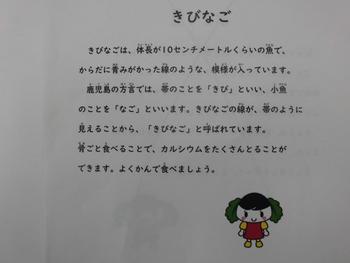 きびなご
きびなごは、体長が10センチメートルくらいの魚で、
からだに青みがかった線のような、模様が入っています。
鹿児島の方言では、帯のことを「きび」といい、小魚
のことを「なご」といいます。きびなごの線が、帯のように
見えることから、「きびなご」と呼ばれています。
骨ごと食べることで、カルシウムをたくさんとることが
できます。よくかんで食べましょう。